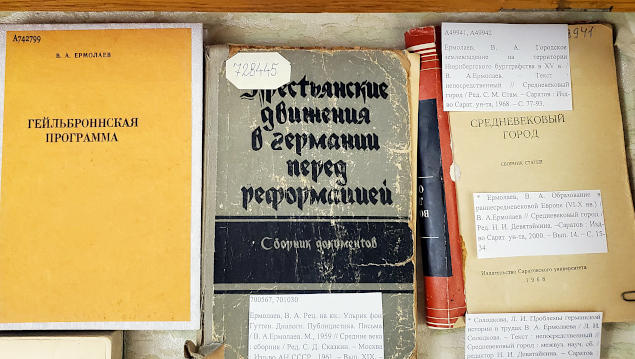 А742799
В. А. ЕРМОЛАЕВ
ГЕЙЛЬБРОННСКАЯ
ПРОГРАММА
728445
Крестьянские
движения
в германии
перед
реформацией
Сборник документов
700567, 701030
Ермолаев, В. А. Рец. на кн.: Ульрих фон
Гуттен. Диалоги. Публицистика. Письма
/ В. А.Ермолаев. М., 1959 // Средние века
: сборник / Ред. С. Д. Сказкин. – Москва :
Изд-во АН СССР, 1961. – Вып. XIX.
А49941, А49942
Ермолаев, В. А. Городское
землевладение на территории
Нюрнбергского бургграфства в XV в. /
В. А.Ермолаев. – Текст :
непосредственный // Средневековый
город / Ред. С. М. Стам. – Саратов : Изд-
во Сарат. ун-та, 1968. – С. 77-93.
9941
СРЕДНЕВЕКОВЫЙ
ГОРОД
СБОРНИК СТАТЕЙ
* Ермолаев, В. А. Образование
раннесредневековой Европе (VI-X вв.) /
В. А.Ермолаев // Средневековый город /
Ред. Н. И. Девятайкина. – Саратов : Изд-
во Сарат. ун-та, 2000. – Вып. 14. – С. 15-
34.
Издательство Саратовского университета
1968
* Солодкова, Л. И. Проблемы германской
истории в трудах В. А. Ермолаева / Л. И.
Солодкова. – Текст : непосредственный //
Средневековый город : межвуз. науч. сб. /
редкол.: Н. И. Девятайкина. – Саратов